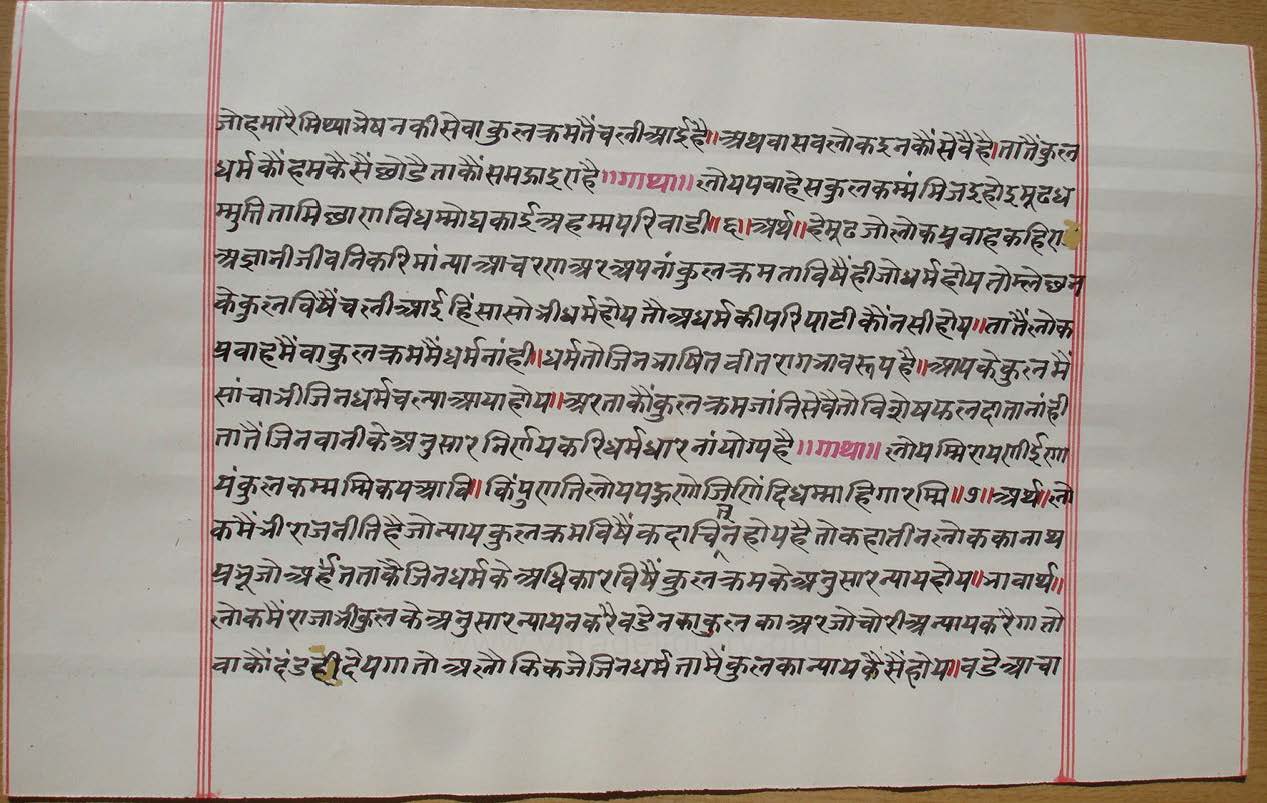 जोहमारैमिथ्याभेषनकीसेवाकुलक्रमतैंचलीआईहै॥अथवासवलोकइनकौंसेवैहै।तातैंकुल
धर्मकौंहमकैसैंछोडैताकौंसमझाइएहै॥गाथा॥लोयपवाहेसकुलकम्मंमिजइहोइमूढध
म्मुत्तितामिछाणविधम्मोघकाईअहम्मपरिवाडी॥६॥अर्थ॥हेमूढजोलोकप्रवाहकहिए
अज्ञानीजीवनिकरिमांन्याआचरणअरअपनांकुलक्रमताविषैंहीजोधर्महोयतोम्लेछन
केकुलविषैंचलीआईहिंसासोभीधर्महोयतौअधर्मकीपरिपाटीकौंनसीहोय॥तातैंलोक
प्रवाहमैंवाकुलक्रममैंधर्मनांही॥धर्मतोजिनभाषितवीतरागभावरूपहै॥आपकेकुलमैं
सांचाभीजिनधर्मचल्याआयाहोय॥अरताकौंकुलक्रमजांनिसेवैतोविशेषफलदातानांही
तातैंजिनवानीकेअनुसारनिर्णयकरिधर्मधारनांयोग्यहै॥गाथा॥लोयम्मिरायणीईणा
यंकुलकम्मम्मिकयआवि॥किंपुणतिलोयपहुणोजिणिंदिधम्माहिगारम्मि॥७॥अर्थ॥लो
कमैंभीराजनीतिहैजोन्यायकुलक्रमविषैंकदाचित्नहोयहैतोकहातीनलोककानाथ
प्रभूजोअर्हंतताकैजिनधर्मकेअधिकारविषैंकुलक्रमकेअनुसारन्यायहोय॥भावार्थ॥
लोकमैंराजाभीकुलकेअनुसारन्यायनकरैवडेनकाकुलकाअरजोचोरीअन्यायकरैगातो
वाकौंदंडहीदेयगातोअलौकिकजेजिनधर्मतामैंकुलकान्यायकैसैंहोय॥वडेआचा